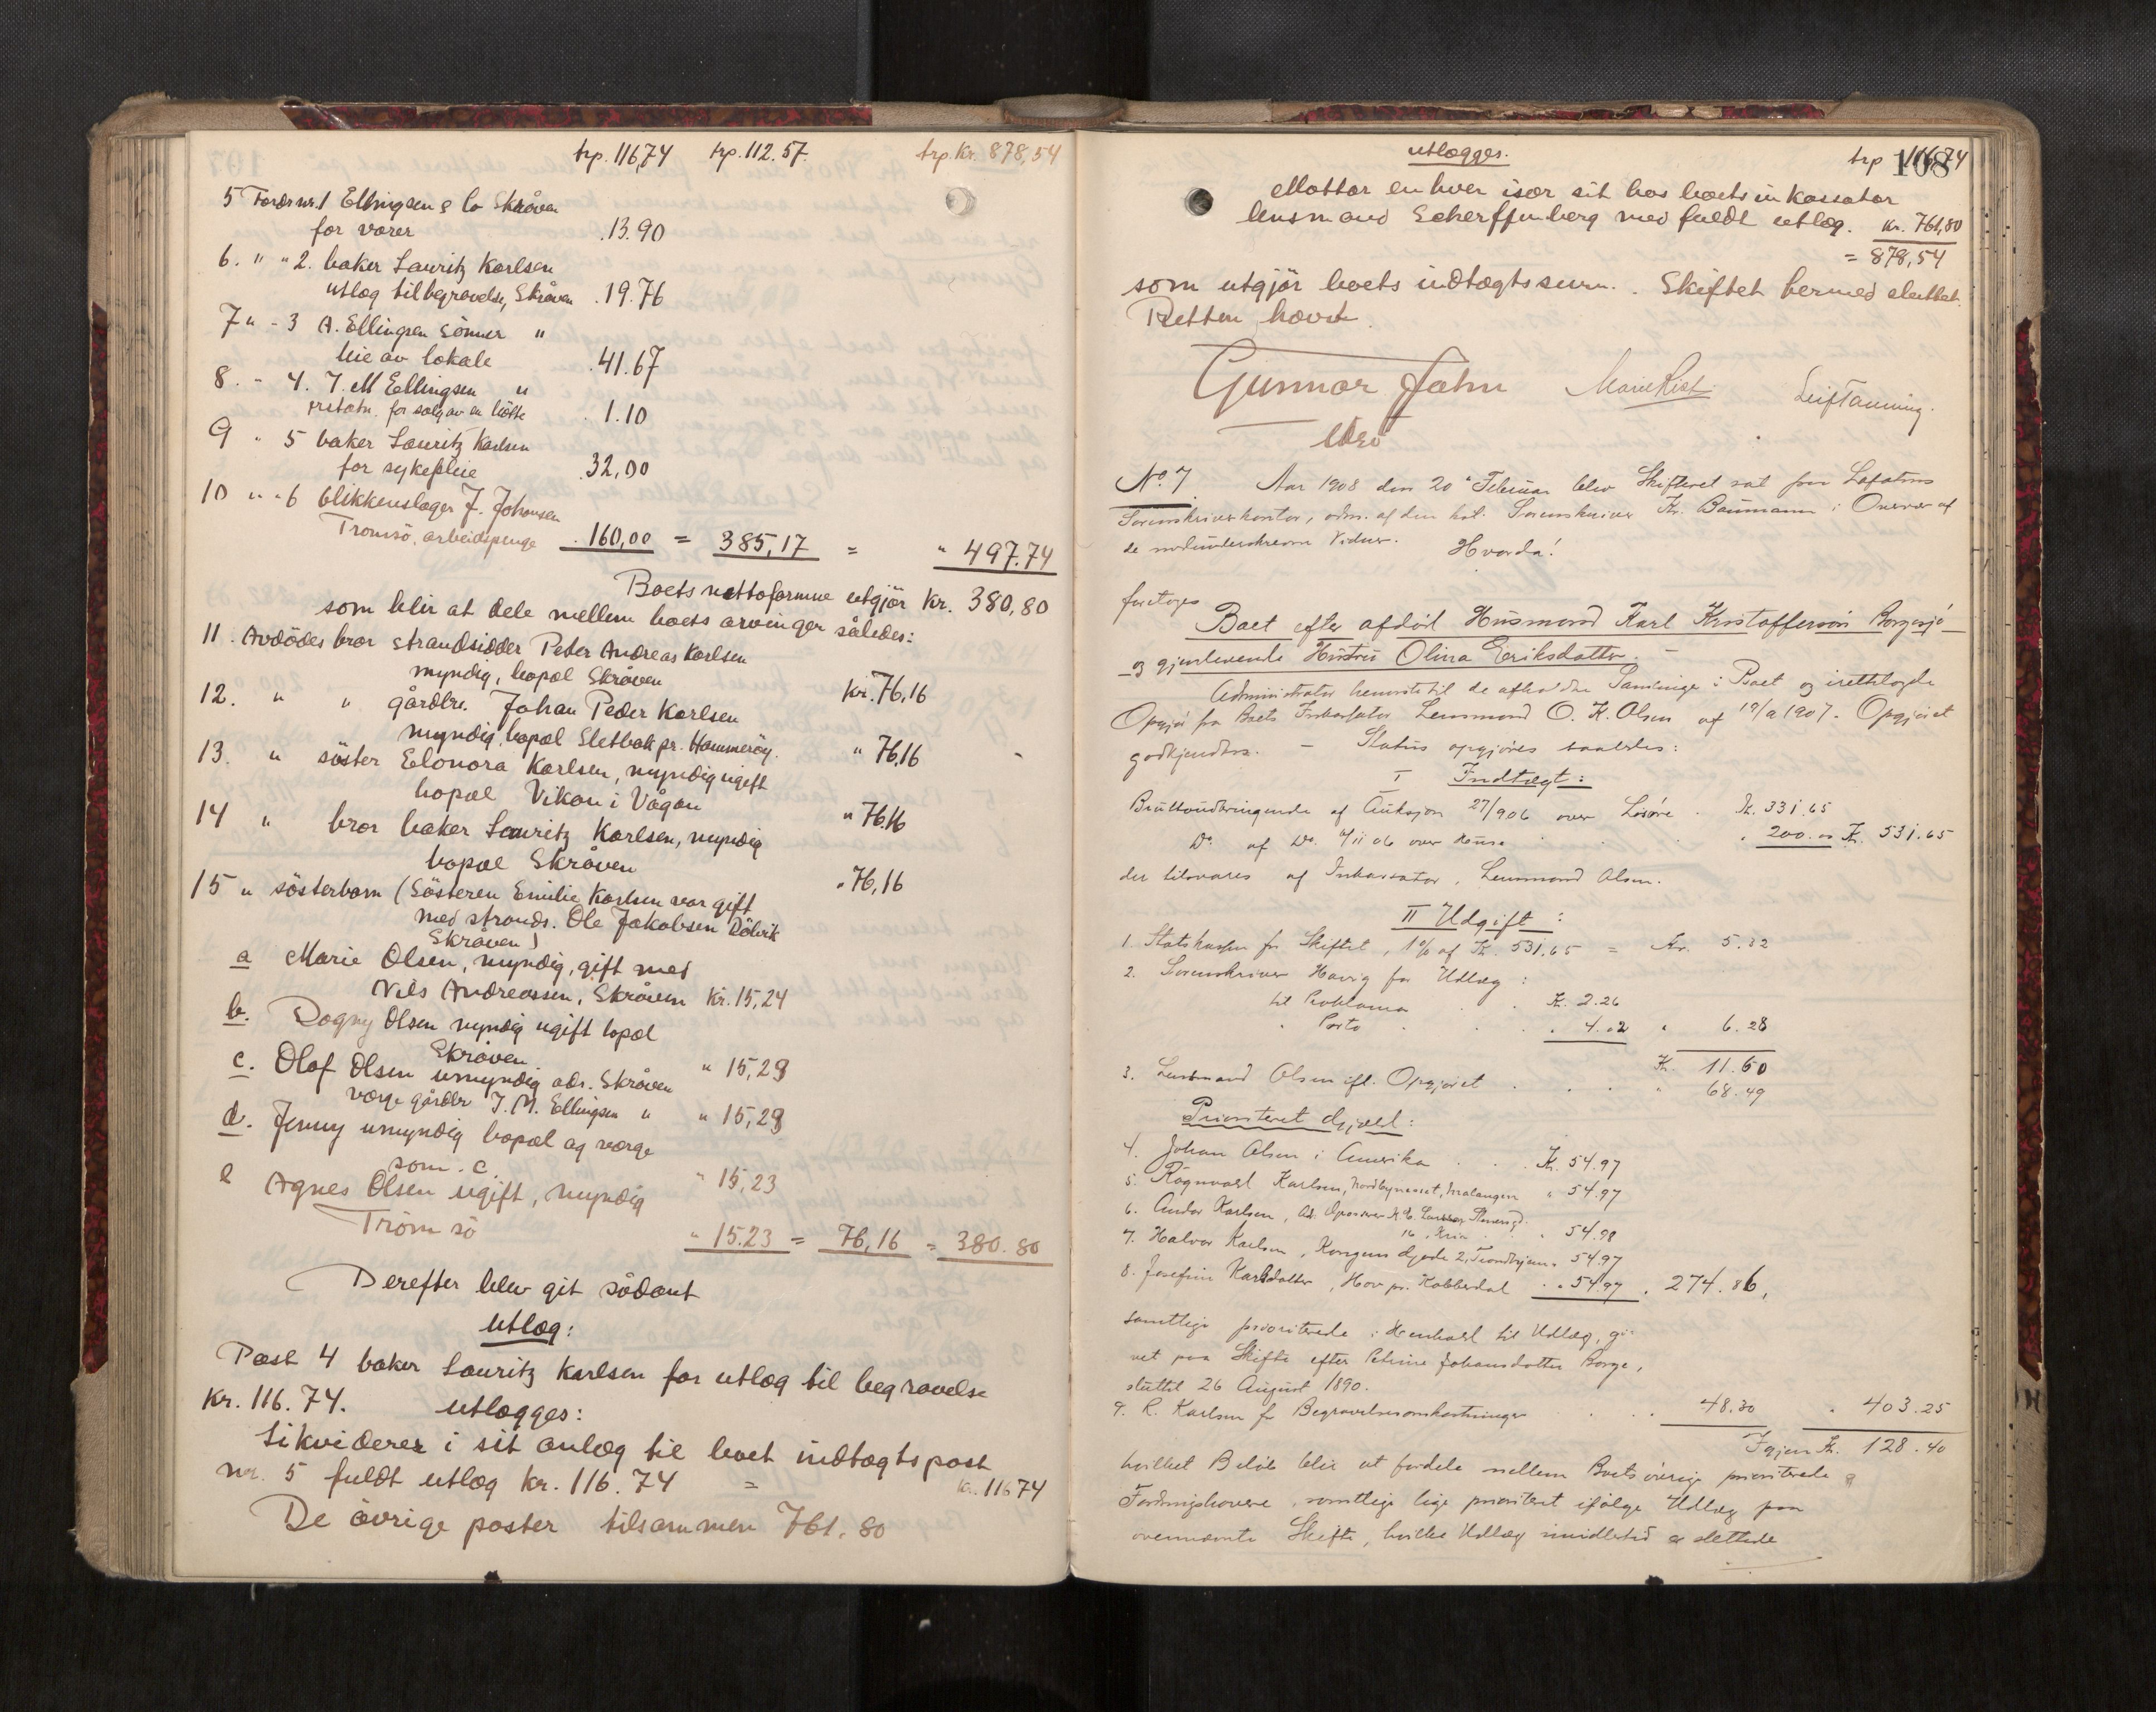 trp. 116,74 trp. 112.57. trp. Kr. 878,54
5 Fordr nr. 1 Ellingsen & Co Skråven
for varer .13.90
6. " " 2. baker Lauritz Karlsen
utlæg til begravelse, Skråven .19.76
7 " - 3 A. Ellingsen Sönner "
leie av lokale .41.67
8. - 4. J. M Ellingsen "
for salg av en 1.10
9 " 5 baker Lauritz Karlsen
for sykepleie .32,00
10 " - 6 blikkenslager J. Johansen
Tromsö, arbeidspenge .160,00 = 385,17 = " 497.74
Boets nettoformue utgjör Kr. 380,80
som blir at dele mellem boets arvinger således:
11. Avdödes bror strandsidder Peter Andreas Karlsen
myndig, bopæl Skråven Kr. 76,16
12. " " gårdbr. Johan Peder Karlsen
myndig, bopæl Sletbak pr. Hammeröy. " 76,16
13. " söster Elonora Karlsen, myndig ugift
bopæl Vikan i Vågan " 76.16
14 " bror baker Lauritz Karlsen, myndig
bopæl Skråven " 76,16
15 " sösterbarn (Sösteren Emilie Karlsen var gift
med strands. Ole Jakobsen Rölvik
Skråven)
a Marie Olsen, myndig, gift med
Nils Andreassen, Skråven Kr. 15,24
b. Dagny Olsen myndig ugift bopæl
Skråven " 15,23
c. Olaf Olsen umyndig adr. Skråven
værge gårdbr J. M. Ellingsen " " 15,23
d. Jenny umyndig bopæl og værge
som. c. " 15,23
e Agnes Olsen ugift, myndig
Tromsö " 15.23 = 76,16 = 380.80
Derefter blev git sådant
utlæg:
Post 4 baker Lauritz Karlsen for utlæg til begravelse
Kr. 116.74. utlægges:
Likviderer i sit anlæg til boet indtægtspost
nr. 5 fuldt utlæg Kr. 116.74 = Kr. 116 74
De övrige poster tilsammen 761.80
utlægges. trp 116,74
108
Mottar enhver især sit hos boets inkassator
lensmand Scherffenberg med fuldt utlæg. Kr. 761,80
= 878,54
som utgjör boets indtægtssum. Skiftet hermed sluttet.
Retten hævet.
Gunnar Jahn Marie Leif Tanning.
No. 7 Aar 1908 den 20 Februar blev Skifteret sat paa Lofotens
Sorenskriverkontor, adm. af den kst. Sorenskriver Kr. Baumann i Overvær af
de nedunderskrevne Vidner. Hvorda!
foretoges
Boet efter afdöd Husmand Karl Kristofferson Borgesjö
og gjenlevende Hustru Olina Eriksdatter. -
Administrator henviste til de afholdte Samlinger i Boet og irettelagde
Opgjör fra Boets Inkassator Lensmand O. K. Olsen af 1907. Opgjöret
godkjendtes. - Status opgjöres saaledes:
I Indtægt:
Bruttoudbringende af Auksjon 27/9 06 over Lösöre . Kr. 331.65
Do. af Do. 11 06 over Huse . 200.00 Kr. 531.65
der tilsvares af Inkassator, Lensmand Olsen.
II Udgift:
1. Statskassen for Skiftet, 1% af Kr. 531.65 = Kr. 5.32
2. Sorenskriver Havig for Udlæg:
til Proklama . Kr. 2.26
" Porto . . . " 4.02 " 6.28
Kr. 11.60
3. Lensmand Olsen ifl. Opgjöret . . . " 68.49
Prioriteret Gjæld:
4. Johan Olsen i Amerika . . . Kr. 54.97
5. Ragnvald Karlsen, Nordbyneset, Malangen " 54.97
6. Andor Karlsen, 54.98
7. Halvor Karlsen, Kongens 2, Trondhjem " 54.97
8. Josefine Karlsdatter, Hov pr. Kabbelvåg . " 54.97 . 274.86,
samtlige prioriterede i Henhold til Udlæg, gi-
vet paa Skifte efter Petrine Johansdatter Borge,
sluttet 26 August 1890.
9. R. Karlsen for Begravelsesomkostninger . . . 48.30 " 403.25
Igjen Kr. 128.40
hvilket Beløb blir at fordele mellem Boets övrige prioriterede
Fordringshavere, samtlige lige prioritert ifölge Udlæg paa
ovennævnte Skifte, hvilke Udlæg imidlertid er slettede